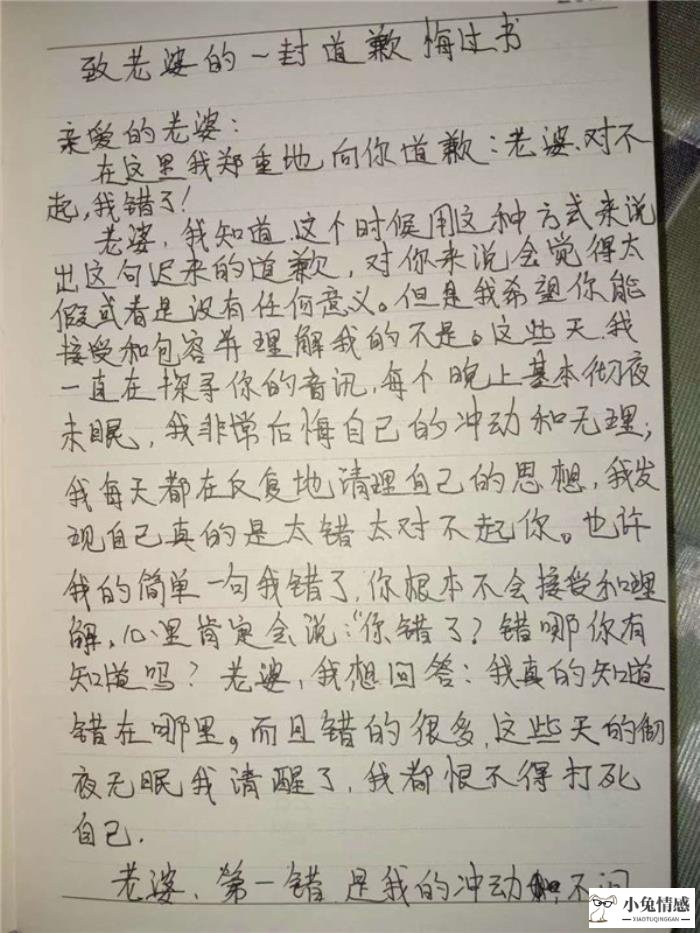 致老婆的一封道歉悔过书
亲爱的老婆：
在这里我郑重地向你道歉：老婆、对不
起，我错了！
老婆，我知道、这个时候用这种方式来说
出这句迟来的道歉，对你来说会觉得太
假或者是没有任何意义。但是我希望你能
接受和包容并理解我的不是。这些天、我
一直在探寻你的音讯，每个晚上基本彻夜
未眠，我非常后悔自己的冲动和无理；
我每天都在反复地清理自己的思想，我发
现自己真的是太错太对不起你。也许
我的简单一句我错了，你根本不会接受和理
解，心里肯定会说：“你错了？错哪你有
知道吗？老婆，我想回答：我真的知道
错在哪里。而且错的很多，这些天的彻
夜无眠我清醒了，我都恨不得打死
自己.
老婆、第一错是我的冲动和不问
小兔情感
XIAOTUQINGGAN